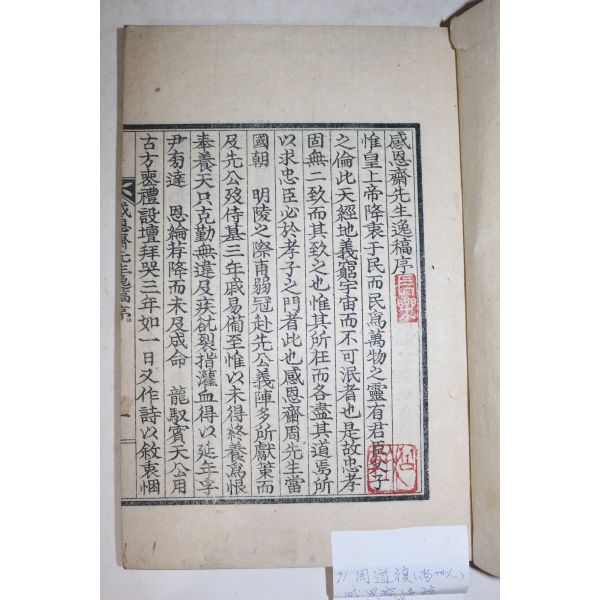 感恩齋先生逸稿序
惟皇上帝降衷于民而民爲萬物之靈有君臣父子
之倫此天經地義窮宇宙而不可泯者也是故忠孝
固無二致而其致之也惟其所在而各盡其道焉所
以求忠臣必於孝子之門者此也感恩齋周先生當
國朝 明陵之際甫弱冠赴先公義陣多所獻策而
及先公歿侍墓三年戚易備至惟以未得終養爲恨
奉養天只克勤無違及疾㞃裂指灌血得以延年享
尹 達 恩綸將降而未及成命 龍馭賓天公用
古方喪禮設壇拜哭三年如一日又作詩以敘衷悃
感恩齋先生逸稿序
一
91 周道復(尙州人)